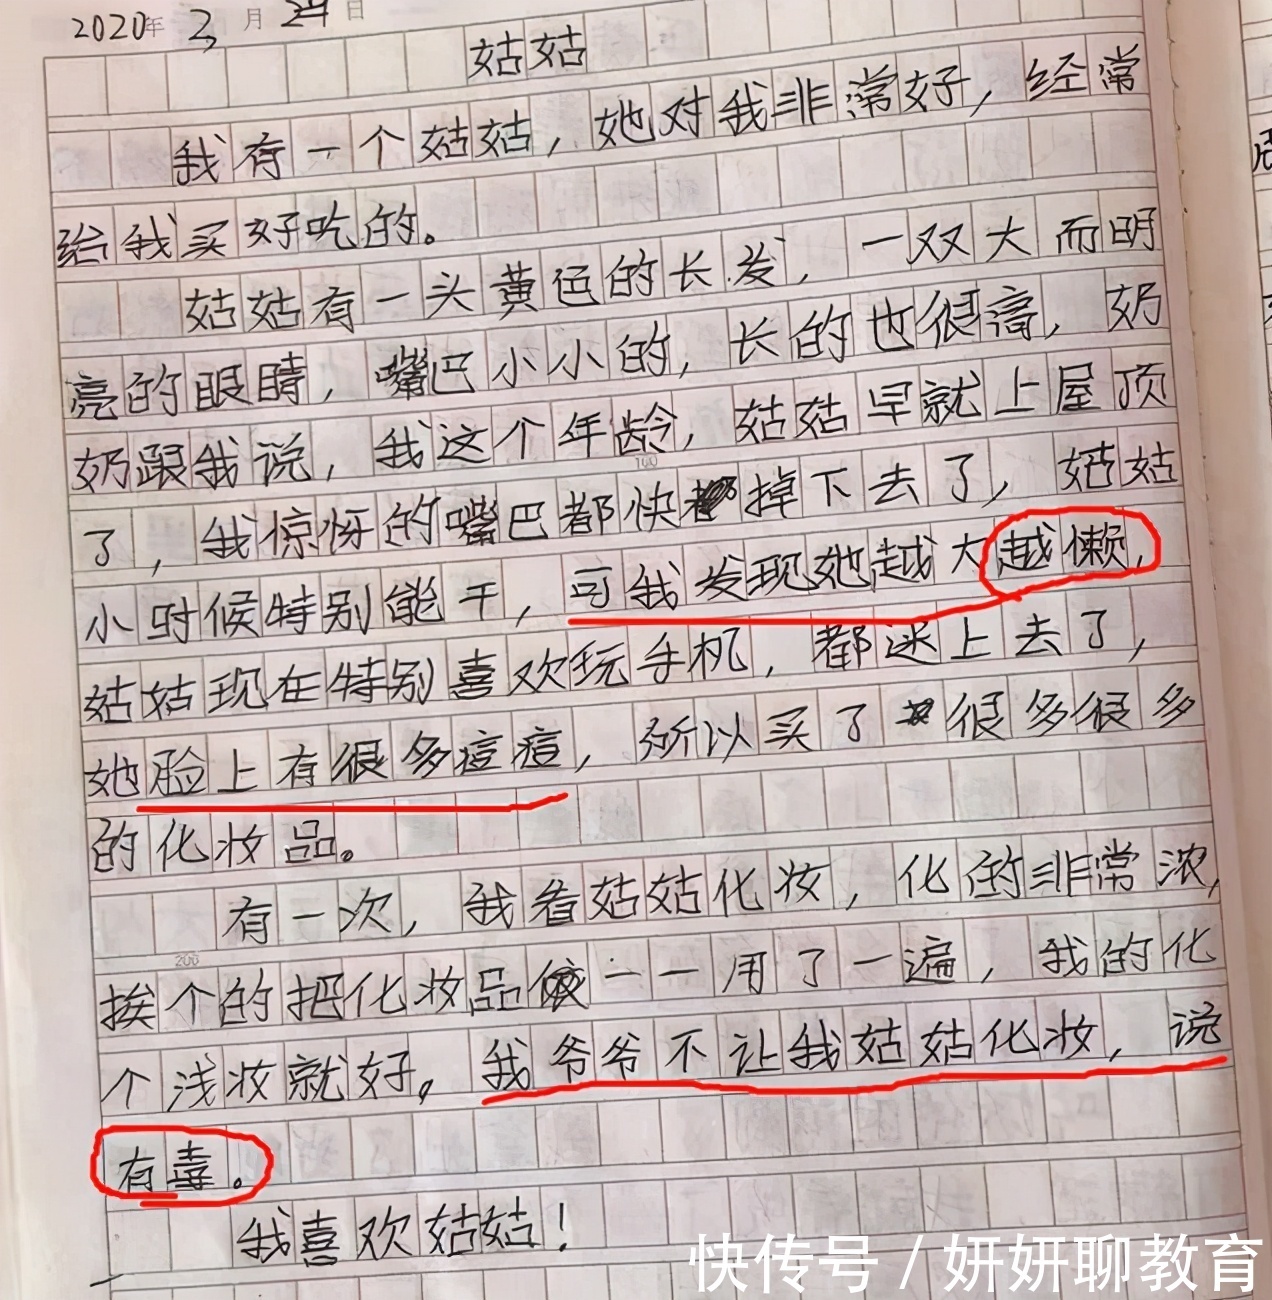 2020年 2月 29日
姑姑
我有一个姑姑，她对我非常好，经常
给我买好吃的。
姑姑有一头黄色的长发，一双大而明
亮的眼睛，嘴巴小小的，长的也很高，奶
奶跟我说，我这个年龄，姑姑早就上屋顶
100
了，我惊讶的嘴巴都快掉下去了，姑姑
小时候特别能干，可我发现她越大越懒，
姑姑现在特别喜欢玩手机，都迷上去了，
她脸上有很多痘痘，所以买了很多很多
的化妆品。
有一次，我看姑姑化妆，化的非常浓，
200
挨个的把化妆品一一用了一遍，我的化
个浅妆就好。我爷爷不让我姑姑化妆，说
有毒。
我喜欢姑姑！
快传号 / 妍妍聊教育